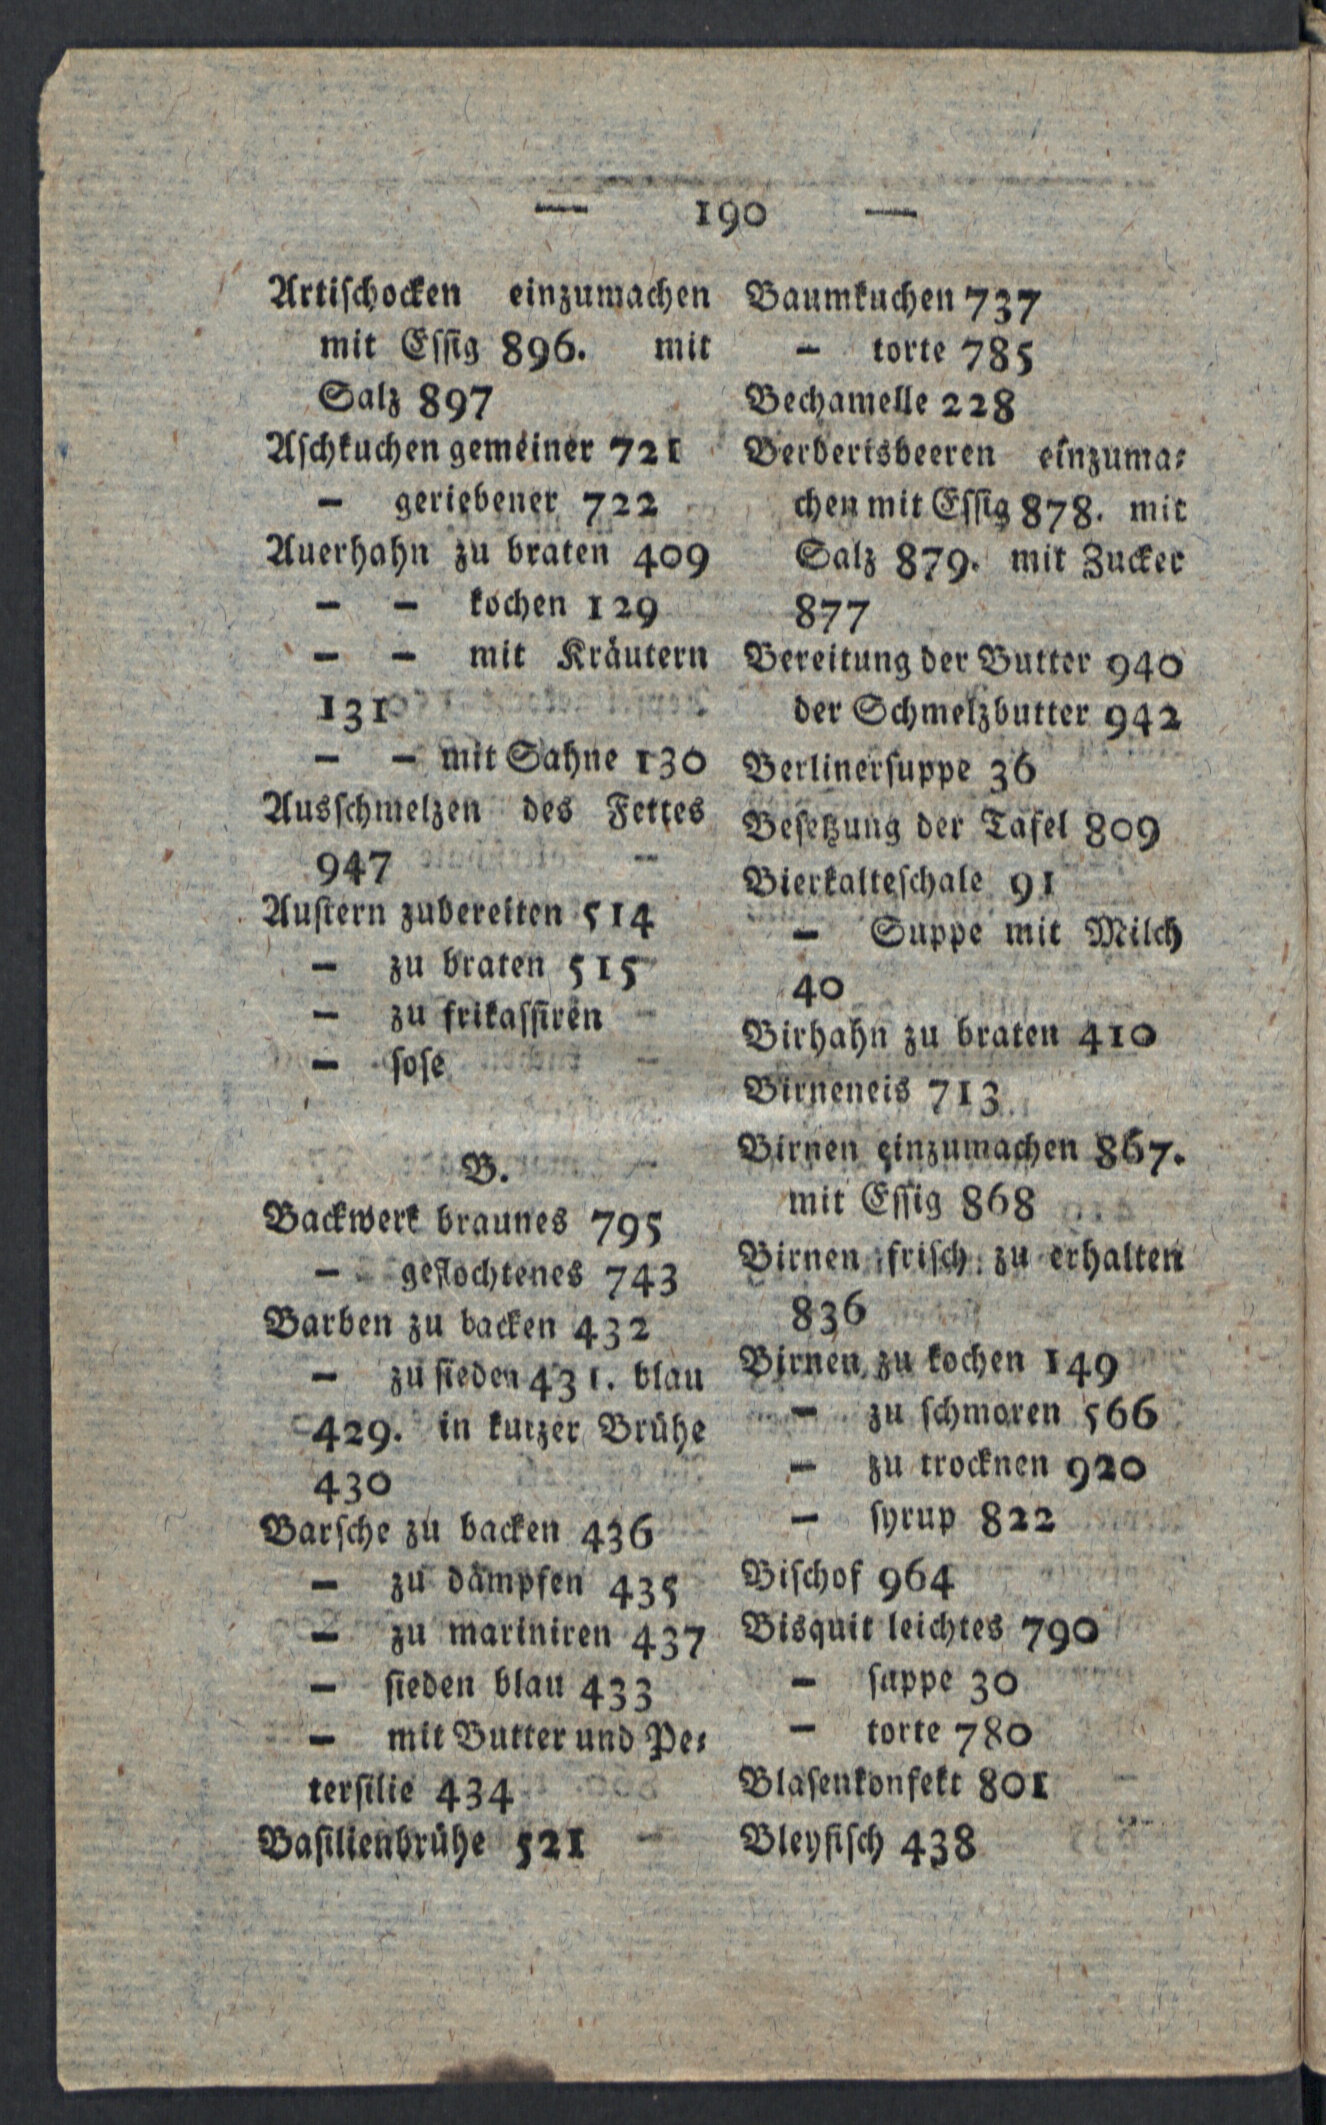 — 190 —
Artiſchocken einzumachen
mit Eſſig 896. mit
Salz 897
Aſchkuchen gemeiner 721
– geriebener 722
Auerhahn zu braten 409
– – kochen 129
– – mit Kräutern
131
– – mit Sahne 130
Ausſchmelzen des Fettes
947
Auſtern zubereiten 514
– zu braten 515
– zu frikaſſiren
– ſoſe
B.
Backwerk braunes 795
– geflochtenes 743
Barben zu backen 432
– zu ſieden 431. blau
429. in kurzer Brühe
430
Barſche zu backen 436
– zu dämpfen 435
– zu mariniren 437
– ſieden blau 433
– mit Butter und Pe⸗
terſilie 434
Baſilienbrühe 521
Baumkuchen 737
– torte 785
Bechamelle 228
Berberisbeeren einzuma⸗
chen mit Eſſig 878. mit
Salz 879. mit Zucker
877
Bereitung der Butter 940
der Schmelzbutter 942
Berlinerſuppe 36
Beſetzung der Tafel 809
Bierkalteſchale 91
– Suppe mit Milch
40
Birhahn zu braten 410
Birneneis 713
Birnen einzumachen 867.
mit Eſſig 868
Birnen friſch zu erhalten
836
Birnen zu kochen 149
– zu ſchmoren 566
– zu trocknen 920
– ſyrup 822
Biſchof 964
Bisquit leichtes 790
– ſuppe 30
– torte 780
Blaſenkonfekt 801
Bleyfiſch 438